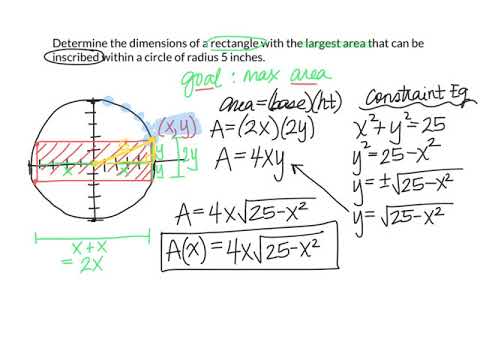 Determine the dimensions of a rectangle with the largest area that can be
inscribed within a circle of radius 5 inches.
goal : max area
area=(base)(ht)
A=(2x)(2y)
A=4xy
Constraint Eq
x²+y²=25
y²=25-x²
y=±√25-x²
y=√25-x²
(x,y)
x
x
y
y
2y
x+x
=2x
A=4x√25-x²
A(x)=4x√25-x²